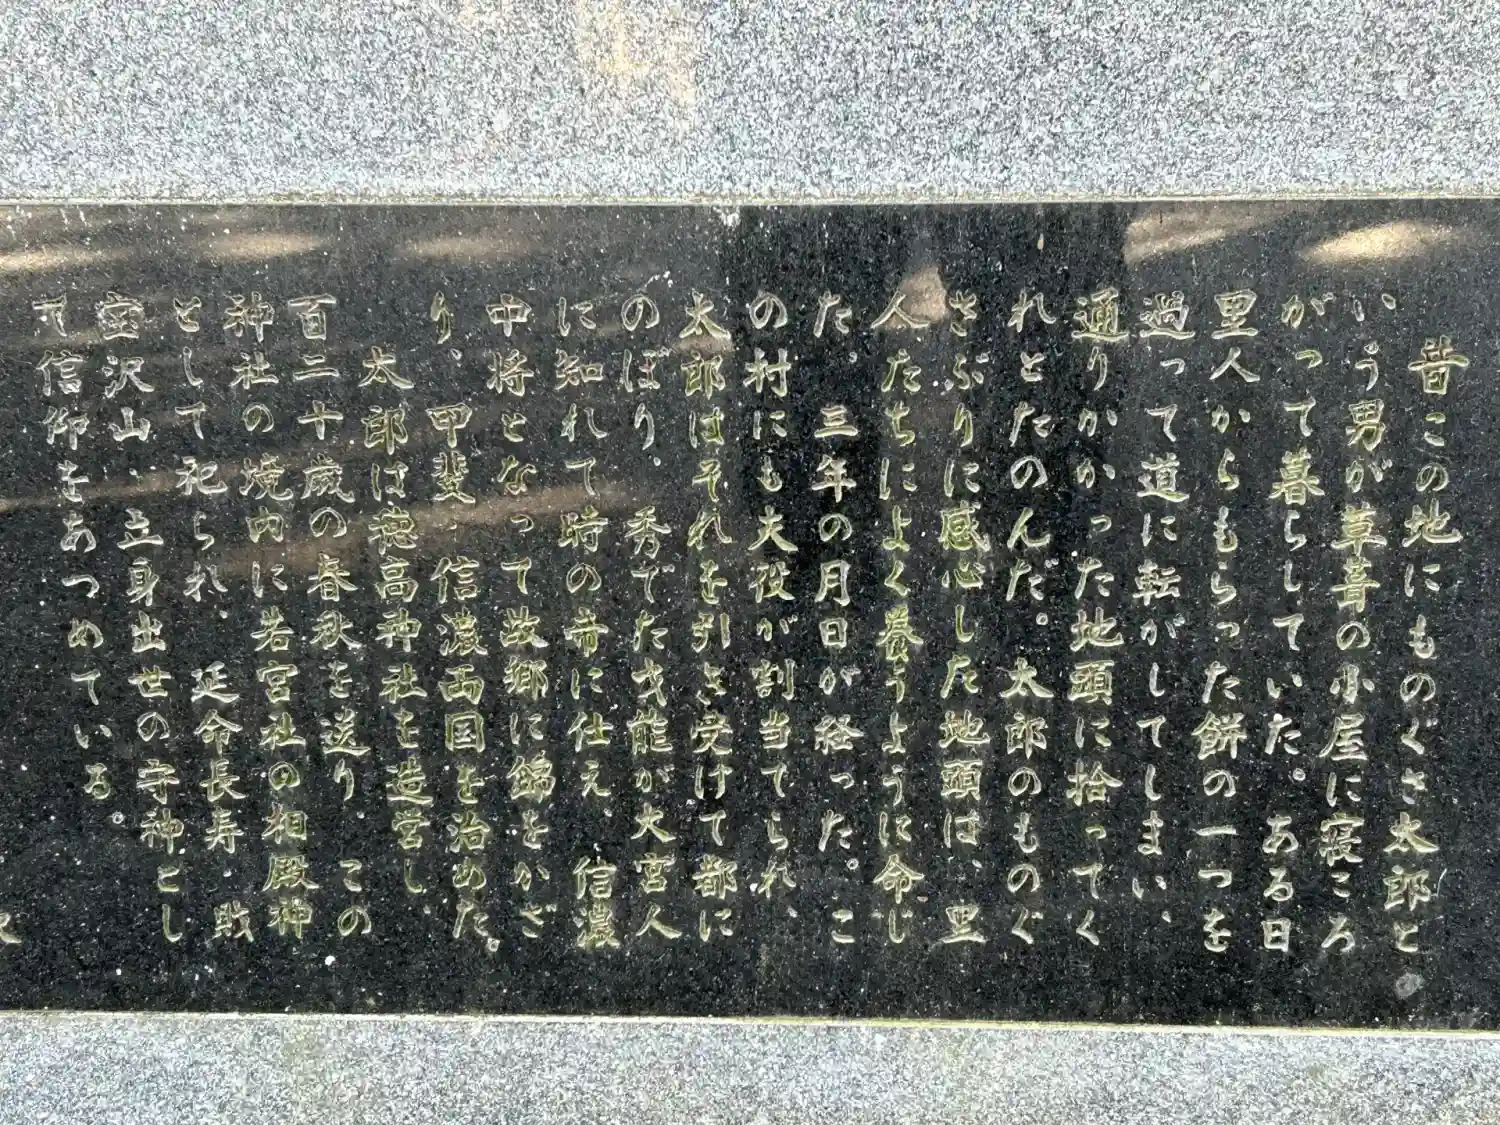 昔この地にものぐさ太郎と
いう男が草葺の小屋に寝ころ
がって暮らしていた。ある日
里人からもらった餅の一つを
過って道に転がしてしまい、
通りかかった地頭に拾ってく
れとたのんだ。太郎のものぐ
さぶりに感心した地頭は、里
人たちによく養うように命じ
た。三年の月日が経った。こ
の村にも大役が割当てられ、
太郎はそれを引き受けて都に
のぼり。秀でた才能が大宮人
に知れて時の帝に仕え、信濃
中将となって故郷に錦をかざ
り、甲斐・信濃両国を治めた。
太郎は穂高神社を造営し、
百二十歳の春秋を送り この
神社の境内に若宮社の相殿神
として祀られ、延命長寿
宝沢山・立身出世の守神とし
て信仰をあつめている。